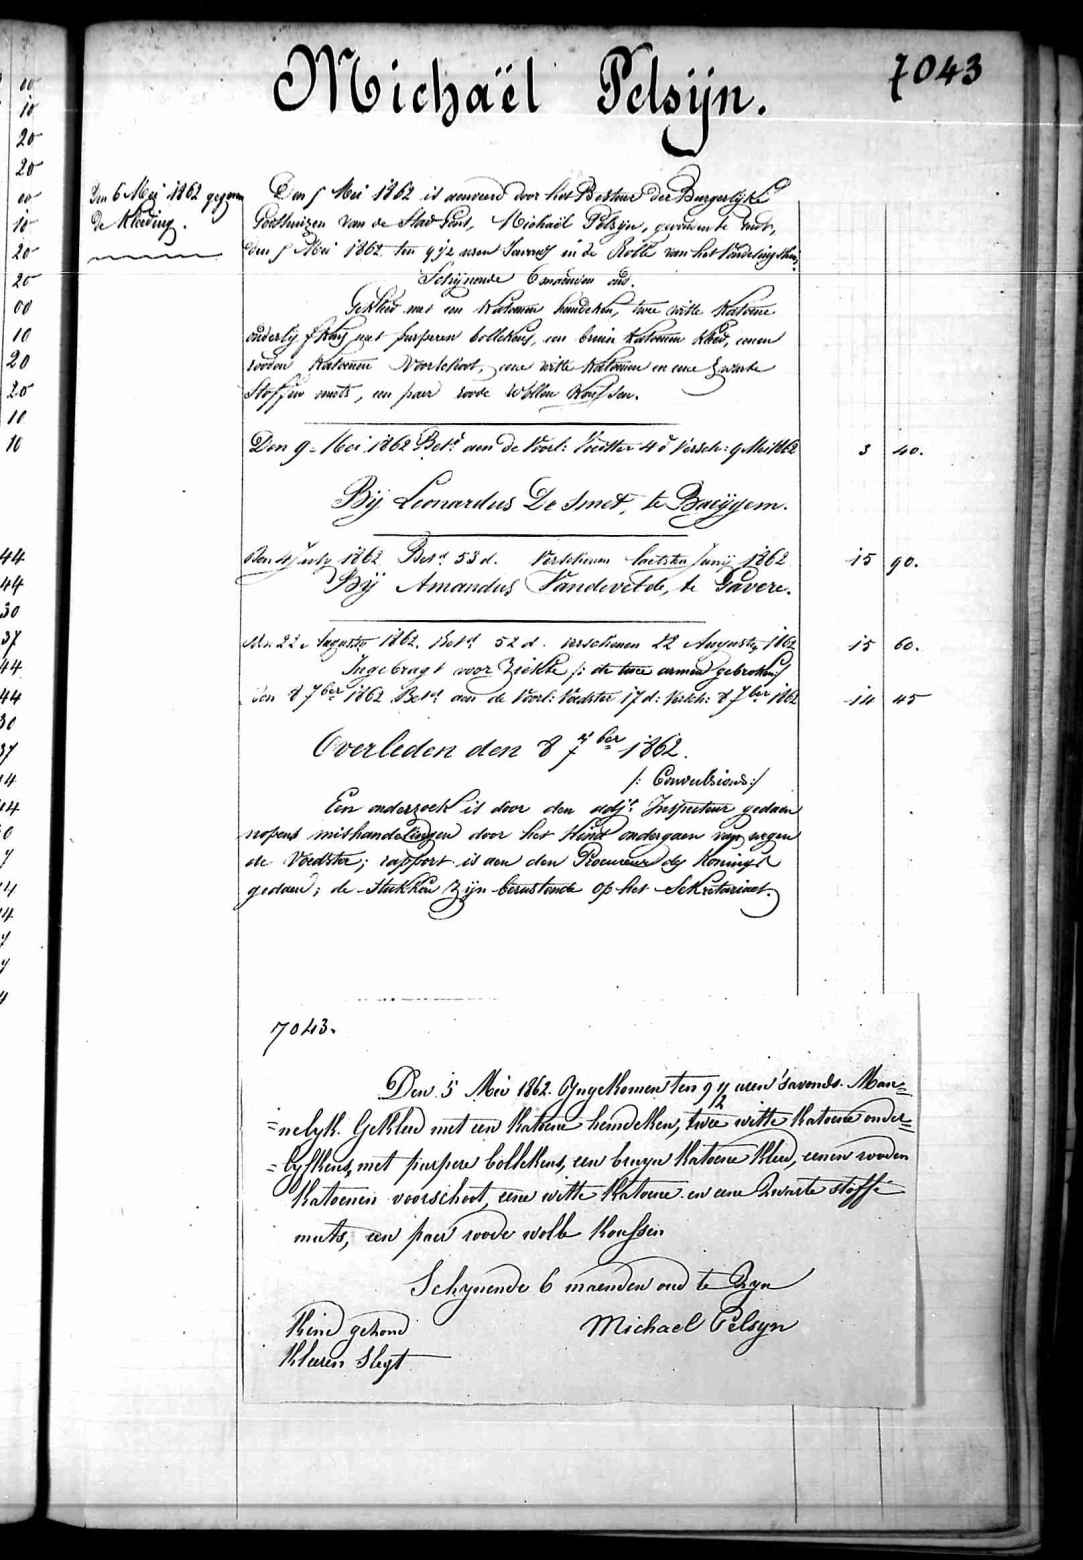 Michaël Pelsijn.
7043
Den 6 Mei 1862 gegeven
de Kleeding.
Den 5 Mei 1862 is aenveerd door het Bestuur der Burgerlyke
Godshuizen van de Stad Gent, Michaël Pelsijn, gevonden te Gent,
den 5 Mei 1862 ten 9 1/2 uren 's avonds in de Rolle van het Vondelingshuis,
Schijnende 6 maenden oud.
Gekleed met een Katoenen hemdeken, twee witte Katoene
onderlijfkens met purperen bollekens, een bruin Katoenen Kleed, eenen
rooden Katoenen Voorschoot, eene witte Katoenen en eene Zwarte
Stoffen muts, een paer roode Wollen Koussen.
Den 9 Mei 1862 Betd aen de Voorl: Voedster 4 d Versch: 9 Mei 1862 3 40.
Bij Leonardus De Smet, te Baeygem.
Den 4 July 1862 Betd 53 d. Verschenen laetsten Junij 1862 15 90.
Bij Amandus Vandevelde, te Gavere.
Den 22 Augusty 1862. Betd 52 d. verschenen 22 Augusty 1862 15 60.
Ingebragt voor Ziekte /: de twee armen gebroken :/
Den 8 7ber 1862 Betd aen de Voorl: Voedster 17 d: Versch: 8 7ber 1862 14 45
Overleden den 8 7ber 1862.
/: Convulsions :/
Een onderzoek is door den adjt Inspecteur gedaen
nopens mishandelingen door het Kind ondergaen van wegen
de Voedster; rapport is aen den Procureur des Konings
gedaen; de Stukken Zijn berustende op het Sekretariaet.
7043.
Den 5 Mei 1862. Ingekomen ten 9 1/2 uren 's avonds. Man=
=nelyk. Gekleed met een Katoene hemdeken, twee witte Katoene onder=
=lyfkens, met purpere bollekens, een bruyn Katoene Kleed, eenen rooden
Katoenen voorschoot, eene witte Katoene en eene Zwarte stoffe
muts, een paer roode wolle Koussen
Schynende 6 maenden oud te Zyn
Kind gezond
Michael Pelsyn
Kleeren Slegt